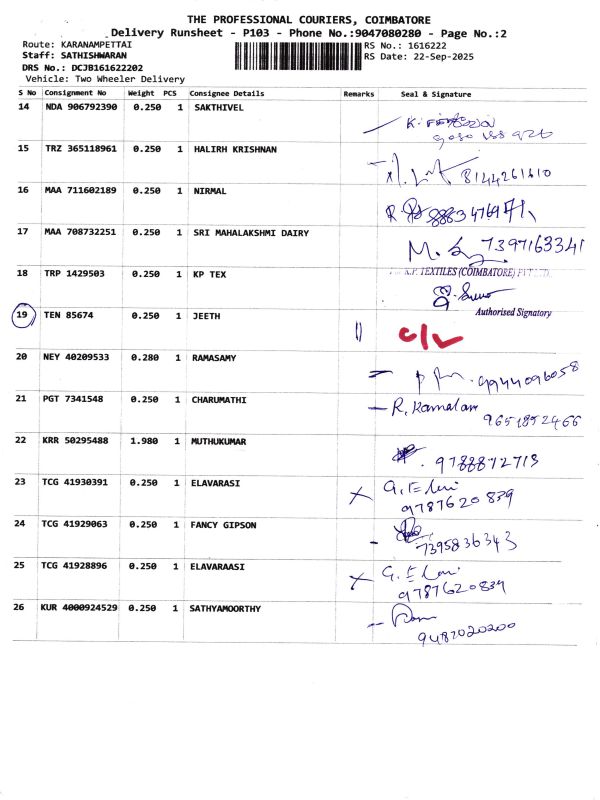 THE PROFESSIONAL COURIERS, COIMBATORE
Delivery Runsheet - P103 - Phone No.:9047080280 - Page No.:2
Route: KARANAMPETTAI RS No.: 1616222
Staff: SATHISHWARAN RS Date: 22-Sep-2025
DRS No.: DCJB161622202
Vehicle: Two Wheeler Delivery
S No Consignment No Weight PCS Consignee Details Remarks Seal & Signature
14 NDA 906792390 0.250 1 SAKTHIVEL
15 TRZ 365118961 0.250 1 HALIRH KRISHNAN
8144261610
16 MAA 711602189 0.250 1 NIRMAL
17 MAA 708732251 0.250 1 SRI MAHALAKSHMI DAIRY
7397163341
18 TRP 1429503 0.250 1 KP TEX
K.P. TEXTILES (COIMBATORE) PVT LTD.
Authorised Signatory
19 TEN 85674 0.250 1 JEETH
C/L
20 NEY 40209533 0.280 1 RAMASAMY
9944096058
21 PGT 7341548 0.250 1 CHARUMATHI
R. Kamalam
9651852466
22 KRR 50295488 1.980 1 MUTHUKUMAR
9788872713
23 TCG 41930391 0.250 1 ELAVARASI
9787620839
24 TCG 41929063 0.250 1 FANCY GIPSON
7395836343
25 TCG 41928896 0.250 1 ELAVARAASI
9787620839
26 KUR 4000924529 0.250 1 SATHYAMOORTHY
9487020200